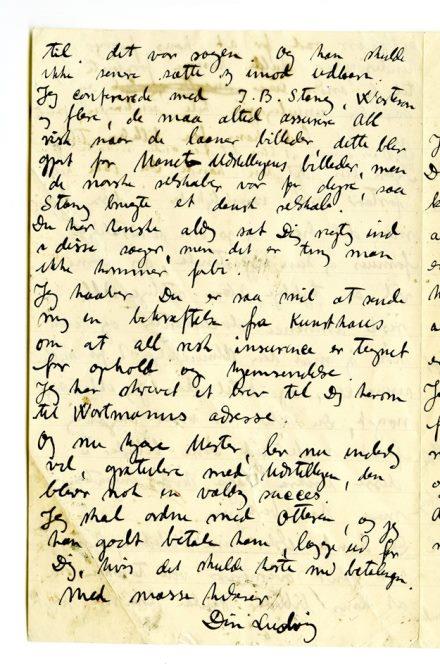 til. det var sagen. Og han skulde
ikke senere sætte sig imod udlaan.
Jeg confererede med J.B. Stang, Worteman
og flere, de maa altid assurere All
risk naar de laaner billeder, dette blev
gjort for Manet Udstillingens billeder, men
de norske selskaber var for dyre, saa
Stang brugte et dansk selskab.
Du har kanske aldrig sat Dig rigtig ind
i disse sager, men det er ting man
ikke kommer forbi.
Jeg haaber Du er saa snil at sende
mig en bekræftelse fra Kunsthaus
om at all risk insurance er tegnet
for ophold og hjemsendelse.
Jeg har skrevet et brev til Dig herom
til Wortmanns adresse.
Og nu kjære Mester, lev nu inderlig
vel, gratulere med Udstillingen, den
blever nok en vældig succes.
Jeg skal ordne med Ottesen, og jeg
kan godt betale ham, lægge ud for
Dig, hvis det skulde haste med betalingen.
Med masse hilsener
Din Ludvig